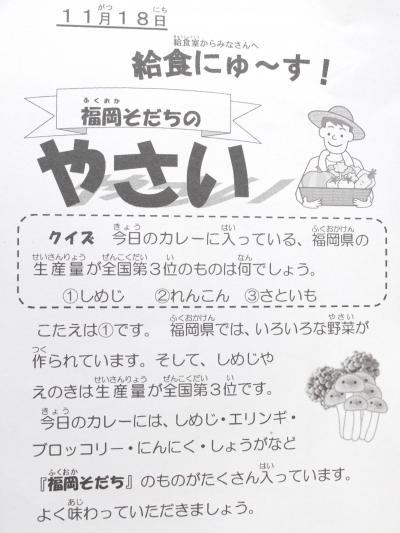 11月18日
給食室からみなさんへ
給食にゅ～す！
福岡そだちの
やさい
クイズ 今日のカレーに入っている、福岡県の
生産量が全国第3位のものは何でしょう。
①しめじ ②れんこん ③さといも
こたえは①です。 福岡県では、いろいろな野菜が
作られています。そして、しめじや
えのきは生産量が全国第3位です。
今日のカレーには、しめじ・エリンギ・
ブロッコリー・にんにく・しょうがなど
『福岡そだち』のものがたくさん入っています。
よく味わっていただきましょう。